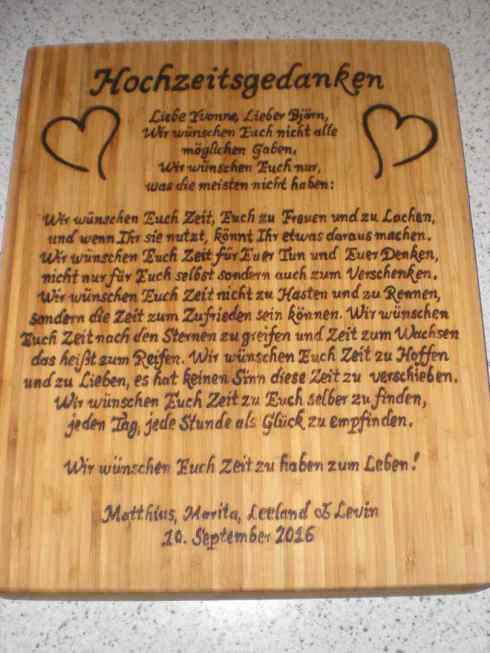 Hochzeitsgedanken
Liebe Yvonne, Lieber Björn,
Wir wünschen Euch nicht alle
möglichen Gaben.
Wir wünschen Euch nur,
was die meisten nicht haben:
Wir wünschen Euch Zeit, Euch zu Freuen und zu Lachen,
und wenn Ihr sie nutzt, könnt Ihr etwas daraus machen.
Wir wünschen Euch Zeit für Euer Tun und Euer Denken,
nicht nur für Euch selbst sondern auch zum Verschenken.
Wir wünschen Euch Zeit nicht zu Hasten und zu Rennen,
sondern die Zeit zum Zufrieden sein können. Wir wünschen
Euch Zeit nach den Sternen zu greifen und Zeit zum Wachsen
das heißt zum Reifen. Wir wünschen Euch Zeit zu Hoffen
und zu Lieben, es hat keinen Sinn diese Zeit zu verschieben.
Wir wünschen Euch Zeit zu Euch selber zu finden,
jeden Tag, jede Stunde als Glück zu empfinden.
Wir wünschen Euch Zeit zu haben zum Leben!
Matthias, Marita, Leeland & Levin
10. September 2016